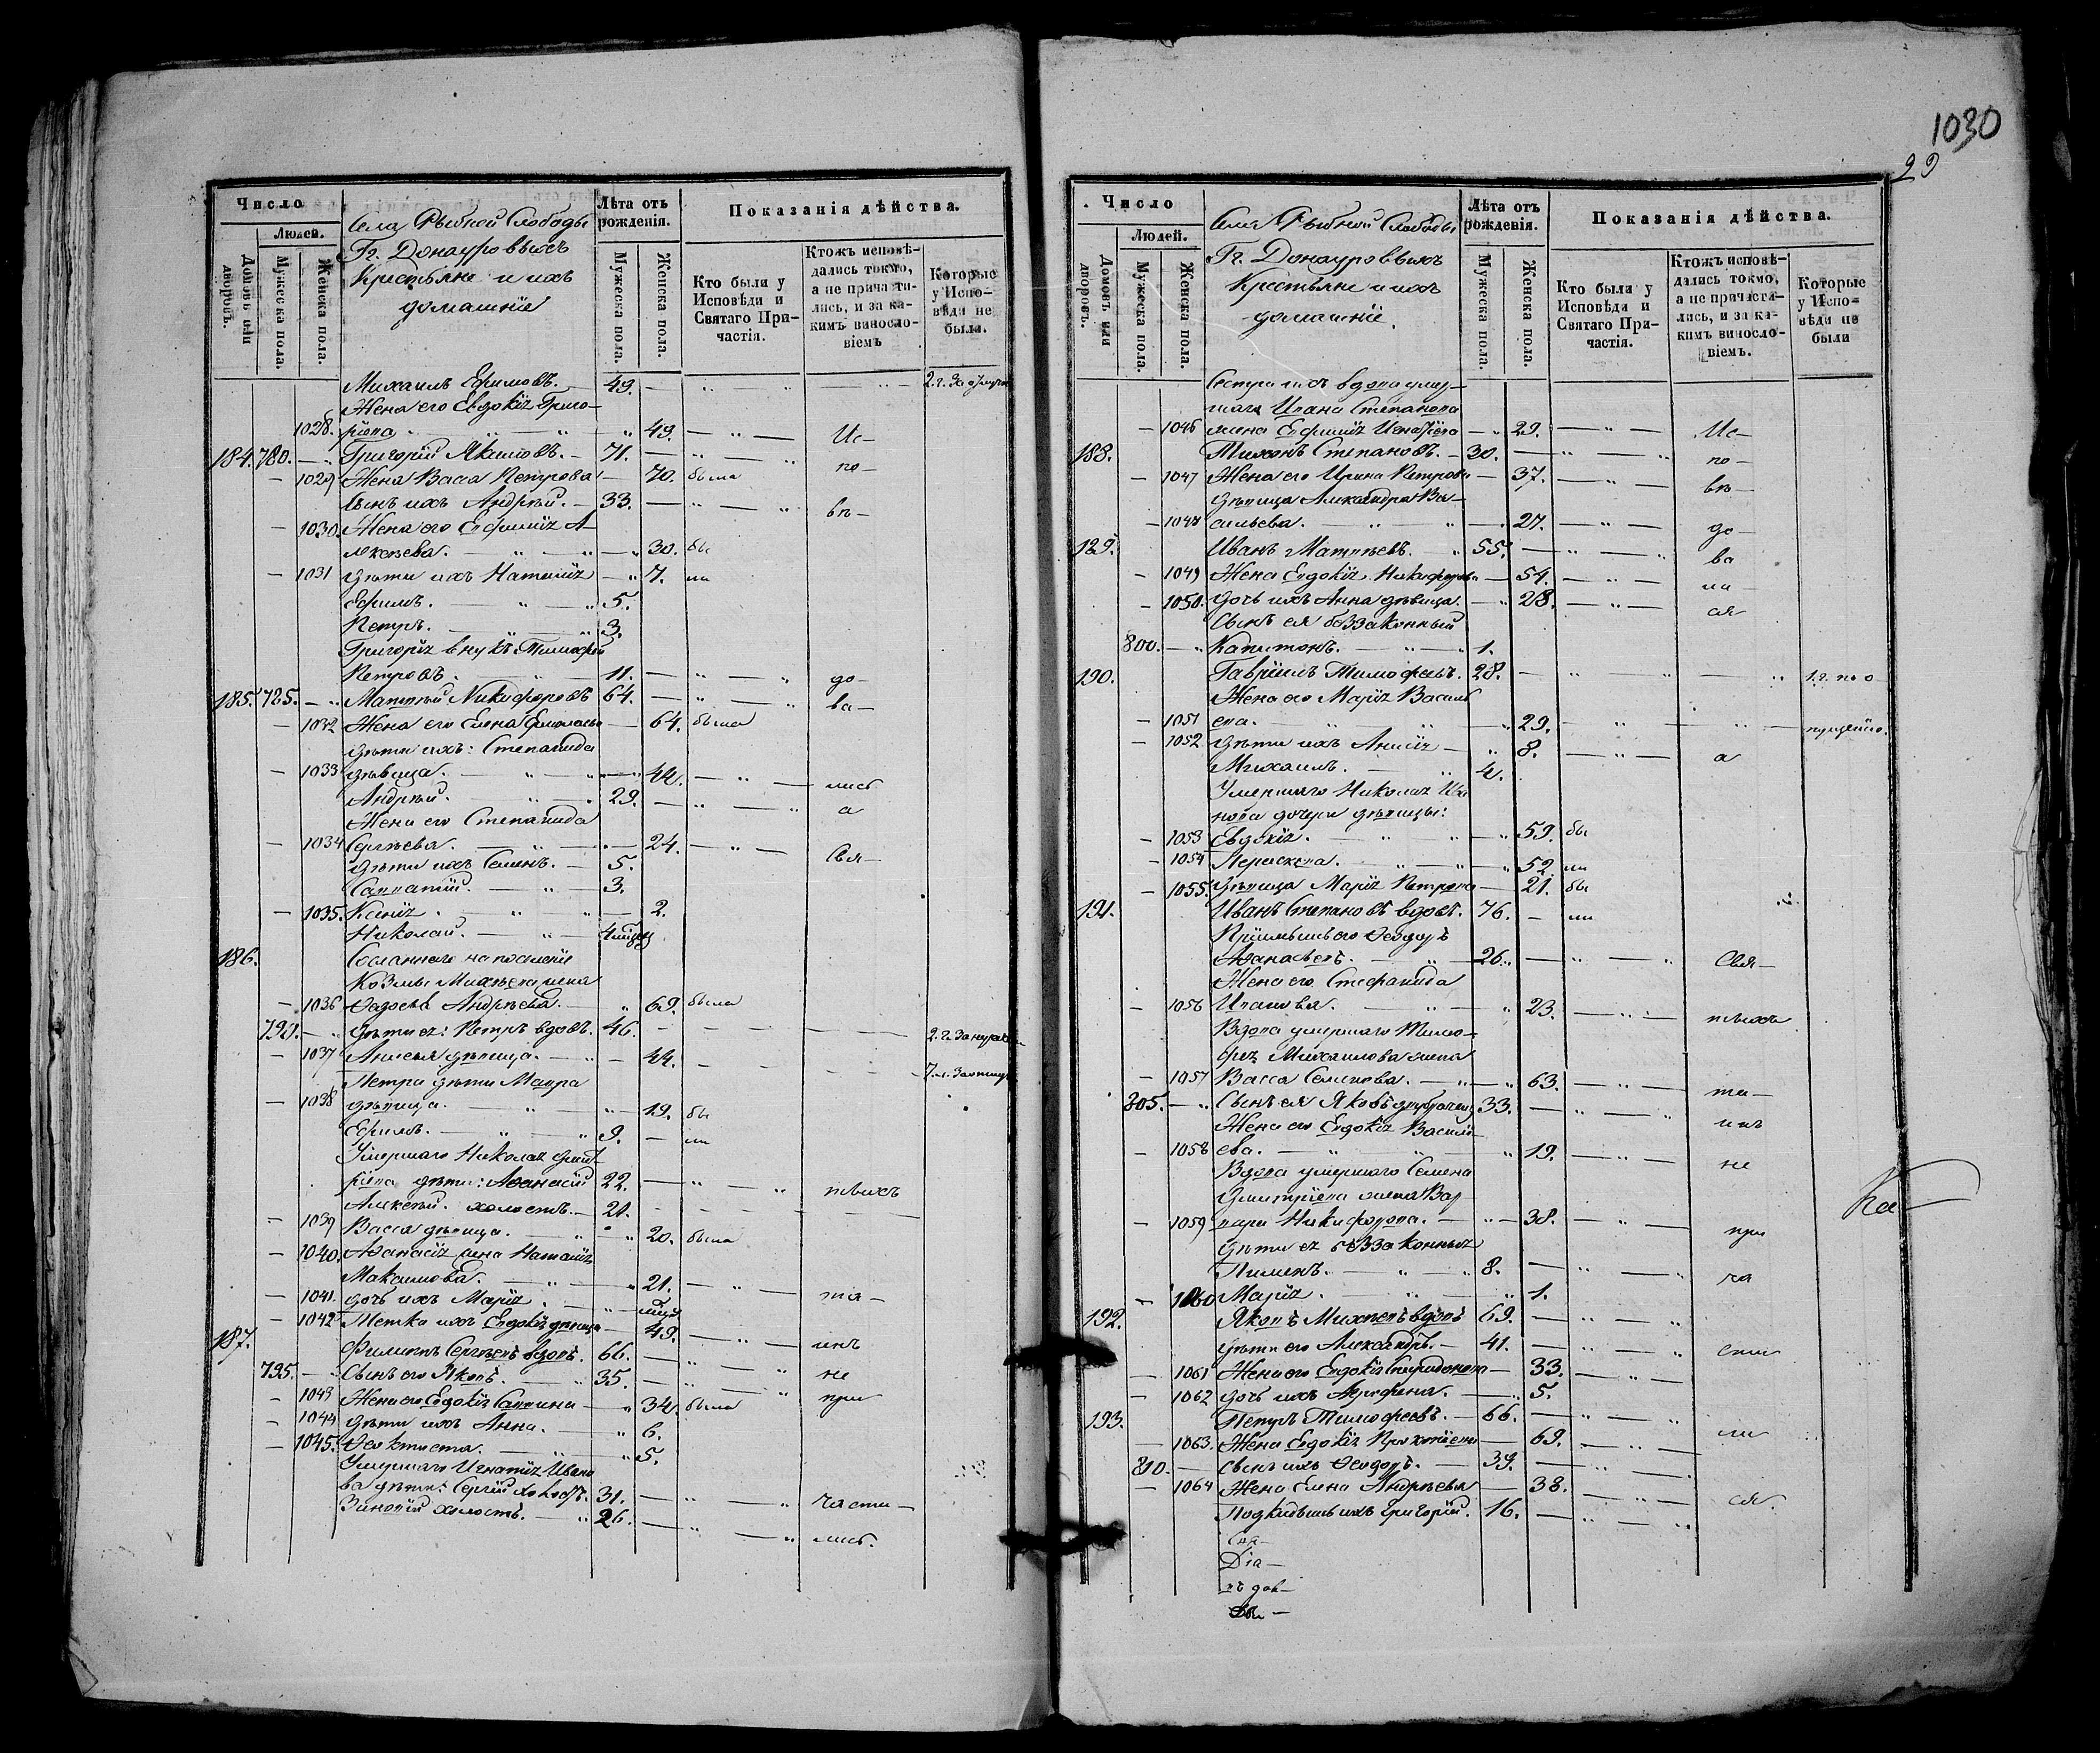 1030
29
Число
Людей.
Домовъ или дворовъ.
Мужеска пола.
Женска пола.
Села Рыбной Слободы
Гг. Донауровыхъ
Крестьяне и ихъ
домашніе
Лѣта отъ рожденія.
Мужеска пола.
Женска пола.
Показанія дѣйства.
Кто были у Исповѣди и Святаго Причастія.
Ктожъ исповѣдались токмо, а не причастились, и за какимъ винословіемъ
Которые у Исповѣди не были.
Михаилъ Ефимовъ. 49. 2. г. За
Жена его Евдокія Григо-
1028. ріева 49. Ис-
184. 780. Григорій Якимовъ. 71. по-
1029 Жена Васса Петрова 70. была
Сынъ ихъ Андрей. 33. вѣ-
1030. Жена его Евфимія А-
лексѣева. 30. бы
1031 Дѣти ихъ Наталія 7. ли
Ефимъ. 5.
Петръ. 3.
Григорія внукъ Тимофей
Петровъ. 11. до-
185. 785. Матвѣй Никифоровъ 64. ва-
1032 Жена его Елена 64. была
дѣти ихъ: Степанида
1033 дѣвица. 44. лись
Андрей. 29. а
Жена его Степанида
1034 Сергѣева. 24. Свя-
Дѣти ихъ Семенъ. 5.
Савватій. 3.
1035. Ксенія 2.
Николай.
186. Сосланнаго на поселеніе
Козмы Михѣева жена
1036 Ѳедосья Андрѣева. 69. была
790. Дѣти ея: Петръ вдовъ. 46. 2. г. За
1037 Анисья дѣвица. 44. 7. г. За
Петра дѣти Мавра
1038 дѣвица. 19. бы
Ефимъ. 9. ли
Умершаго Николая Дмит-
ріева дѣти: Аѳанасій 22. тыхъ
Алексѣй. холостъ. 21.
1039 Васса дѣвица. 20. была
1040. Аѳанасія жена Наталія
Максимова. 21. та-
1041. дочь ихъ Марія.
1042 Тетка ихъ Евдокія дѣвица 49. инъ
187. Филиппъ Сергѣевъ вдовъ. 66. не
795. Сынъ его Яковъ. 35. при
1043 Жена его Евдокія Саввина 34. была
1044 Дѣти ихъ Анна. 6.
1045. Ѳеоктиста. 5.
Умершаго Игнатія Ивано
ва дѣти: Сергій холостъ. 31. части-
Зиновій холостъ. 26. лись.
Число
Людей.
Домовъ или дворовъ.
Мужеска пола.
Женска пола.
Села Рыбной Слободы
Гг. Донауровыхъ
Крестьяне и ихъ
домашніе.
Лѣта отъ рожденія.
Мужеска пола.
Женска пола.
Показанія дѣйства.
Кто были у Исповѣди и Святаго Причастія.
Ктожъ исповѣдались токмо, а не причастились, и за какимъ винословіемъ.
Которые у Исповѣди не были
Сестра ихъ вдова умер-
шаго Ивана Степанова
1046 жена Евфимія Игнатіева 29. Ис-
188. Тихонъ Степановъ. 30. по-
1047 Жена его Ирина Петрова 37. вѣ-
дѣвица Александра Ва-
1048 сильева. 27. до-
189. Иванъ Матвѣевъ. 55. ва
1049 Жена Евдокія Никифорова 54. ли
1050. дочь ихъ Анна дѣвица. 28. ся
Сынъ ея беззаконный
800. Капитонъ. 1.
190. Гавріилъ Тимофеевъ. 28. 1. г. по о
Жена его Марія Василь
1051 ева. 29. пущенію.
1052 Дѣти ихъ Анисія 8. а
Михаилъ. 4.
Умершаго Николая Ива
нова дочери дѣвицы:
1053 Евдокія. 59. бы
1054 Параскева. 52. ли
1055. Дѣвица Марія Петрова 21. бы
191. Иванъ Степановъ вдовъ. 76. ли
Пріимышъ его Ѳеодоръ
Аѳанасьевъ. 26. Свя-
Жена его Стефанида
1056 Иванова. 23. тыхъ
Вдова умершаго Тимо-
фея Михаилова жена
1057 Васса Семенова. 63. та-
805. Сынъ ея Яковъ 33. инъ
Жена его Евдокія Василь-
1058 ева. 19. не
Вдова умершаго Семена
Дмитріева жена Вар-
1059 вара Никифорова. 38. при
Дѣти ея беззаконныя
Пименъ. 8. ча
1060 Марія. 1.
192. Яковъ Михѣевъ вдовъ 69.
Дѣти его Александръ. 41. сти
1061 Жена его Евдокія Спиридонова 33.
1062 дочь ихъ Агрифина. 5.
193. Петръ Тимофеевъ. 66. ли
1063. Жена Евдокія Прокопіева 69.
810. Сынъ ихъ Ѳеодоръ. 39.
1064 Жена Елена Андрѣева 38. ся.
Подкидышъ ихъ Григорій. 16.
Свя-
Dia-
къ дов-
Ка-